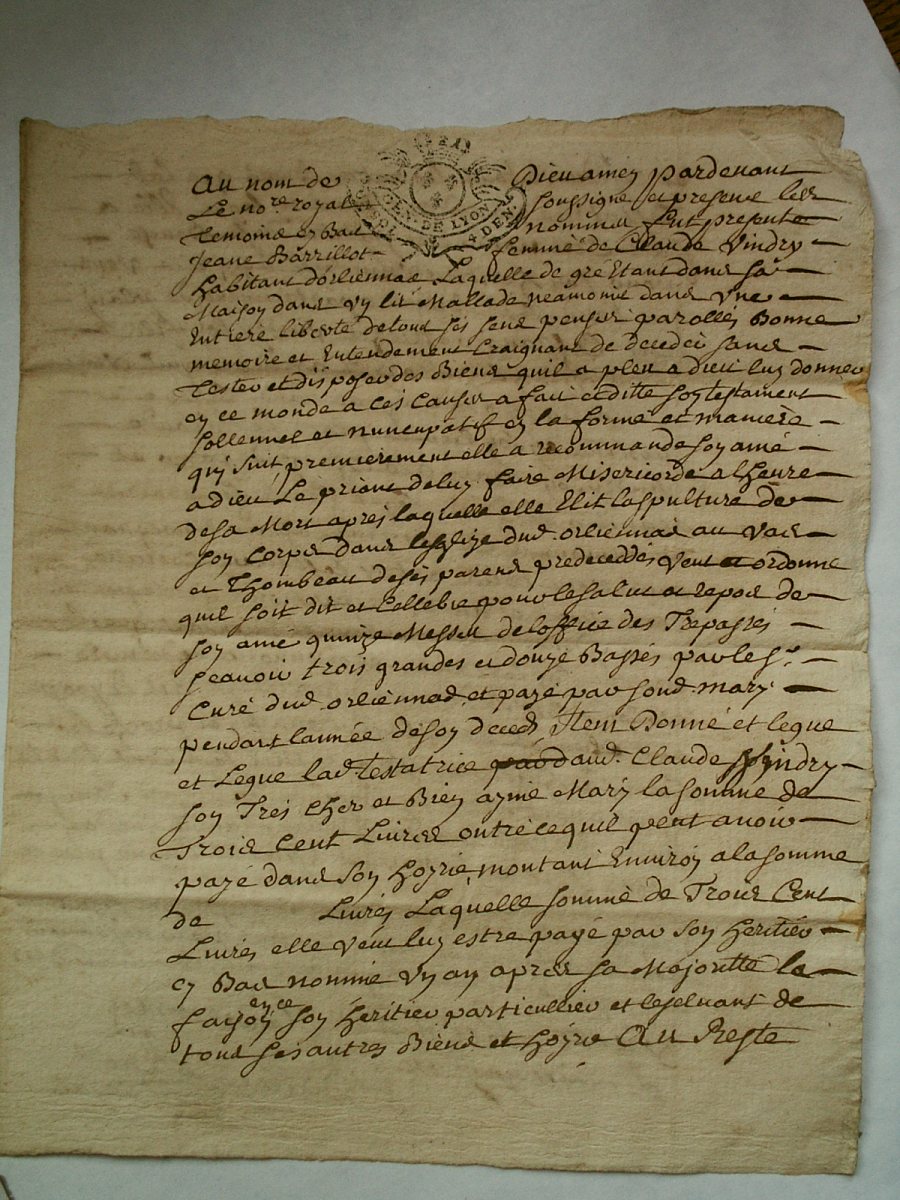 Au nom de Dieu amen pardevant
Le no.re royal soussigne et presence les
Temoins en Bas nommes fut presente
Jeane Barrillot femme de Claude Vindry
GEN. DE LYON
DEN.
habitant dorliennas Laquelle de gré Etant dans sa
Maison dans un lit Mallade neamoins dans une
Entiere liberte de tous ses sens penses parolles Bonne
memoire et Entendement Craignant de deceder sans
Tester et disposer des Biens quil a pleu a dieu luy donner
en ce monde a ces Causes a fait et ditte son testament
sollennel et nuncupatif en la forme et maniere
qui suit, premierement elle a recommande son ame
a dieu Le priant de luy faire Misericorde a lheure
de sa Mort apres laquelle elle Elit la spulture de
son Corps dans leglize dud. orliennas au Vas
et Thombeau de ses parens predecedés Veut et ordonne
quil soit dit et Cellebre pour le salut et repos de
son ame quinze Messes de loffice des Trepassés
scavoir trois grandes et douze Basses par le s.r
Curé dud. orliennas et payé par sond. mary
pendant lannée de son deced Item Donné et legue
et Legue lad. testatrice aud. Claude Vindry
son Tres Cher et Bien aymé Mary la somme de
Trois Cent Livres outre ce quil peut avoir
paye dans son hoyrie montant Environ a la somme
de Livres Laquelle somme de Trois Cent
Livres elle veut luy estre payé par son heritier
en Bas nommé un an apres sa Majoritte le
faisant en ce son heritier particullier et le seluant de
tous ses autres Biens et hoyrie Au Reste